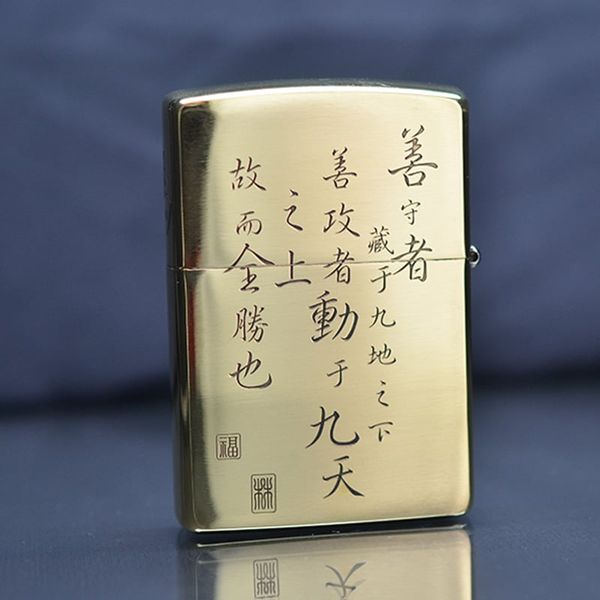 善守者
藏于九地之下
善攻者動于九天
之上
故而全勝也
福
林